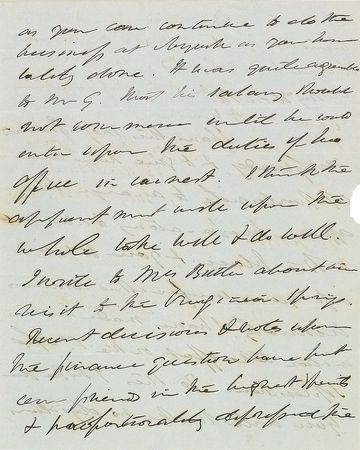 as you can continue to do the
business at Nyack as you have
lately done. It was quite agreeable
to Mr G. that his salary should
not commence until he could
enter upon the duties of his
office in earnest. I think the
appointment will upon the
whole take well & do well.
I wrote to Mrs Butler about our
visit to the Virginia Springs.
Recent decisions & votes upon
the finance question have put
our friends in the highest spirits
& proportionally depressed the